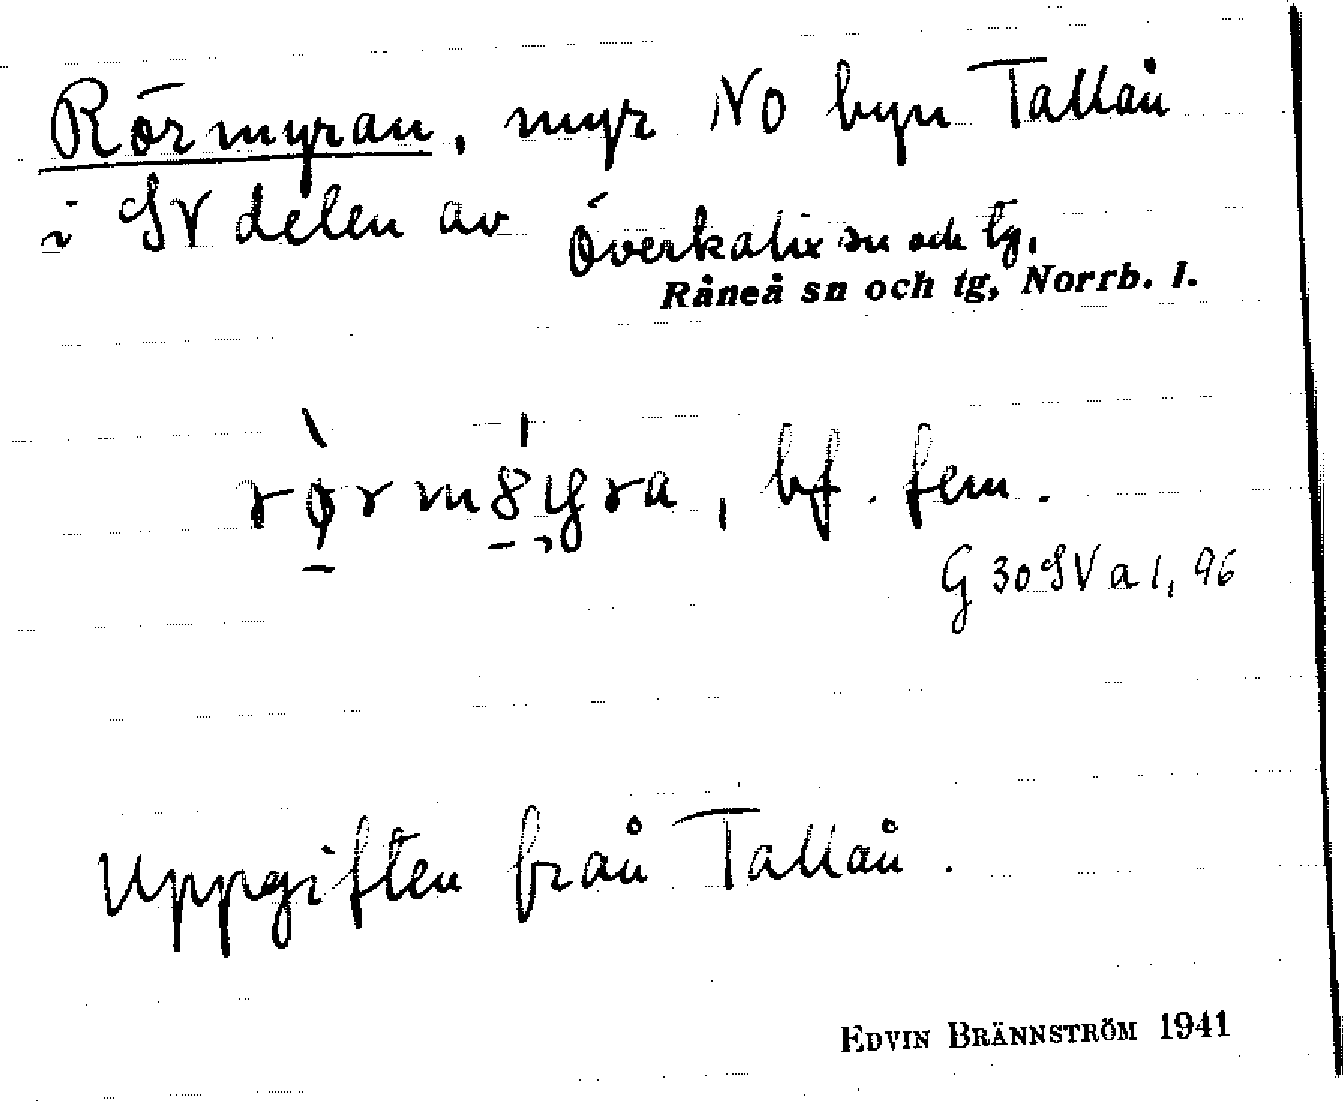 Rörmyran, myr NO byn Tallån
i SV delen av Överkalix sn och tg.
Råneå sn och tg, Norrb. l.
, bf. fem.
G 30 SV a 1, 96
Uppgiften från Tallån.
EDVIN BRÄNNSTRÖM 1941